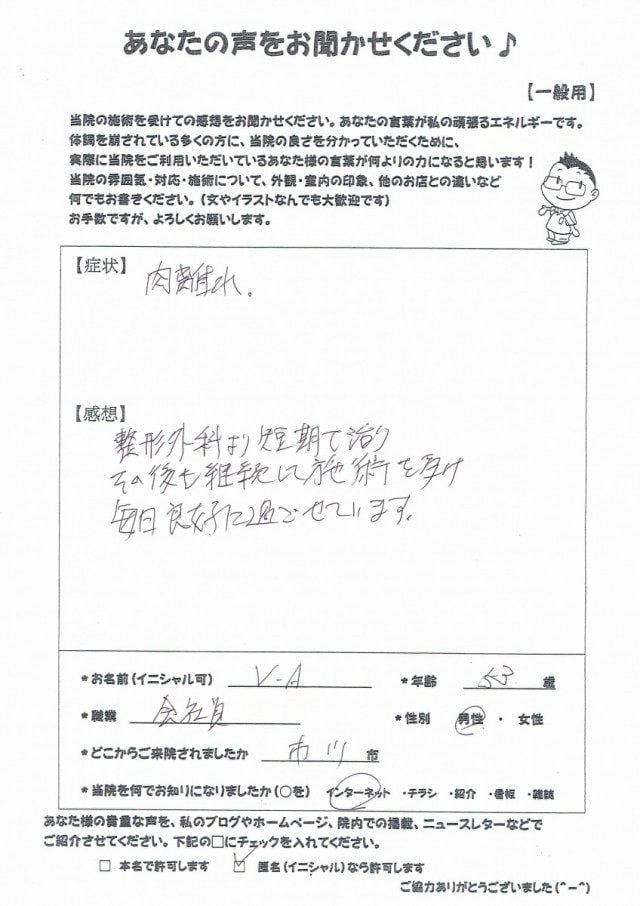 あなたの声をお聞かせください♪
【一般用】
当院の施術を受けての感想をお聞かせください。あなたの言葉が私の頑張るエネルギーです。
体調を崩されている多くの方に、当院の良さを分かっていただくために、
実際に当院をご利用いただいているあなた様の言葉が何よりの力になると思います！
当院の雰囲気・対応・施術について、外観・室内の印象、他のお店との違いなど
何でもお書きください。（文やイラストなんでも大歓迎です）
お手数ですが、よろしくお願いします。
【症状】
肉離れ。
【感想】
整形外科より短期で治り
その後も継続して施術を受け
毎日良好に過ごせています。
*お名前（イニシャル可） V-A *年齢 53 歳
*職業 会社員 *性別 男性 ・ 女性
*どこからご来院されましたか 市川 市
*当院を何でお知りになりましたか（○を） インターネット ・チラシ ・紹介 ・看板 ・雑誌
あなた様の貴重な声を、私のブログやホームページ、院内での掲載、ニュースレターなどで
ご紹介させてください。下記の□にチェックを入れてください。
□ 本名で許可します ☑ 匿名（イニシャル）なら許可します
ご協力ありがとうございました（^－^）